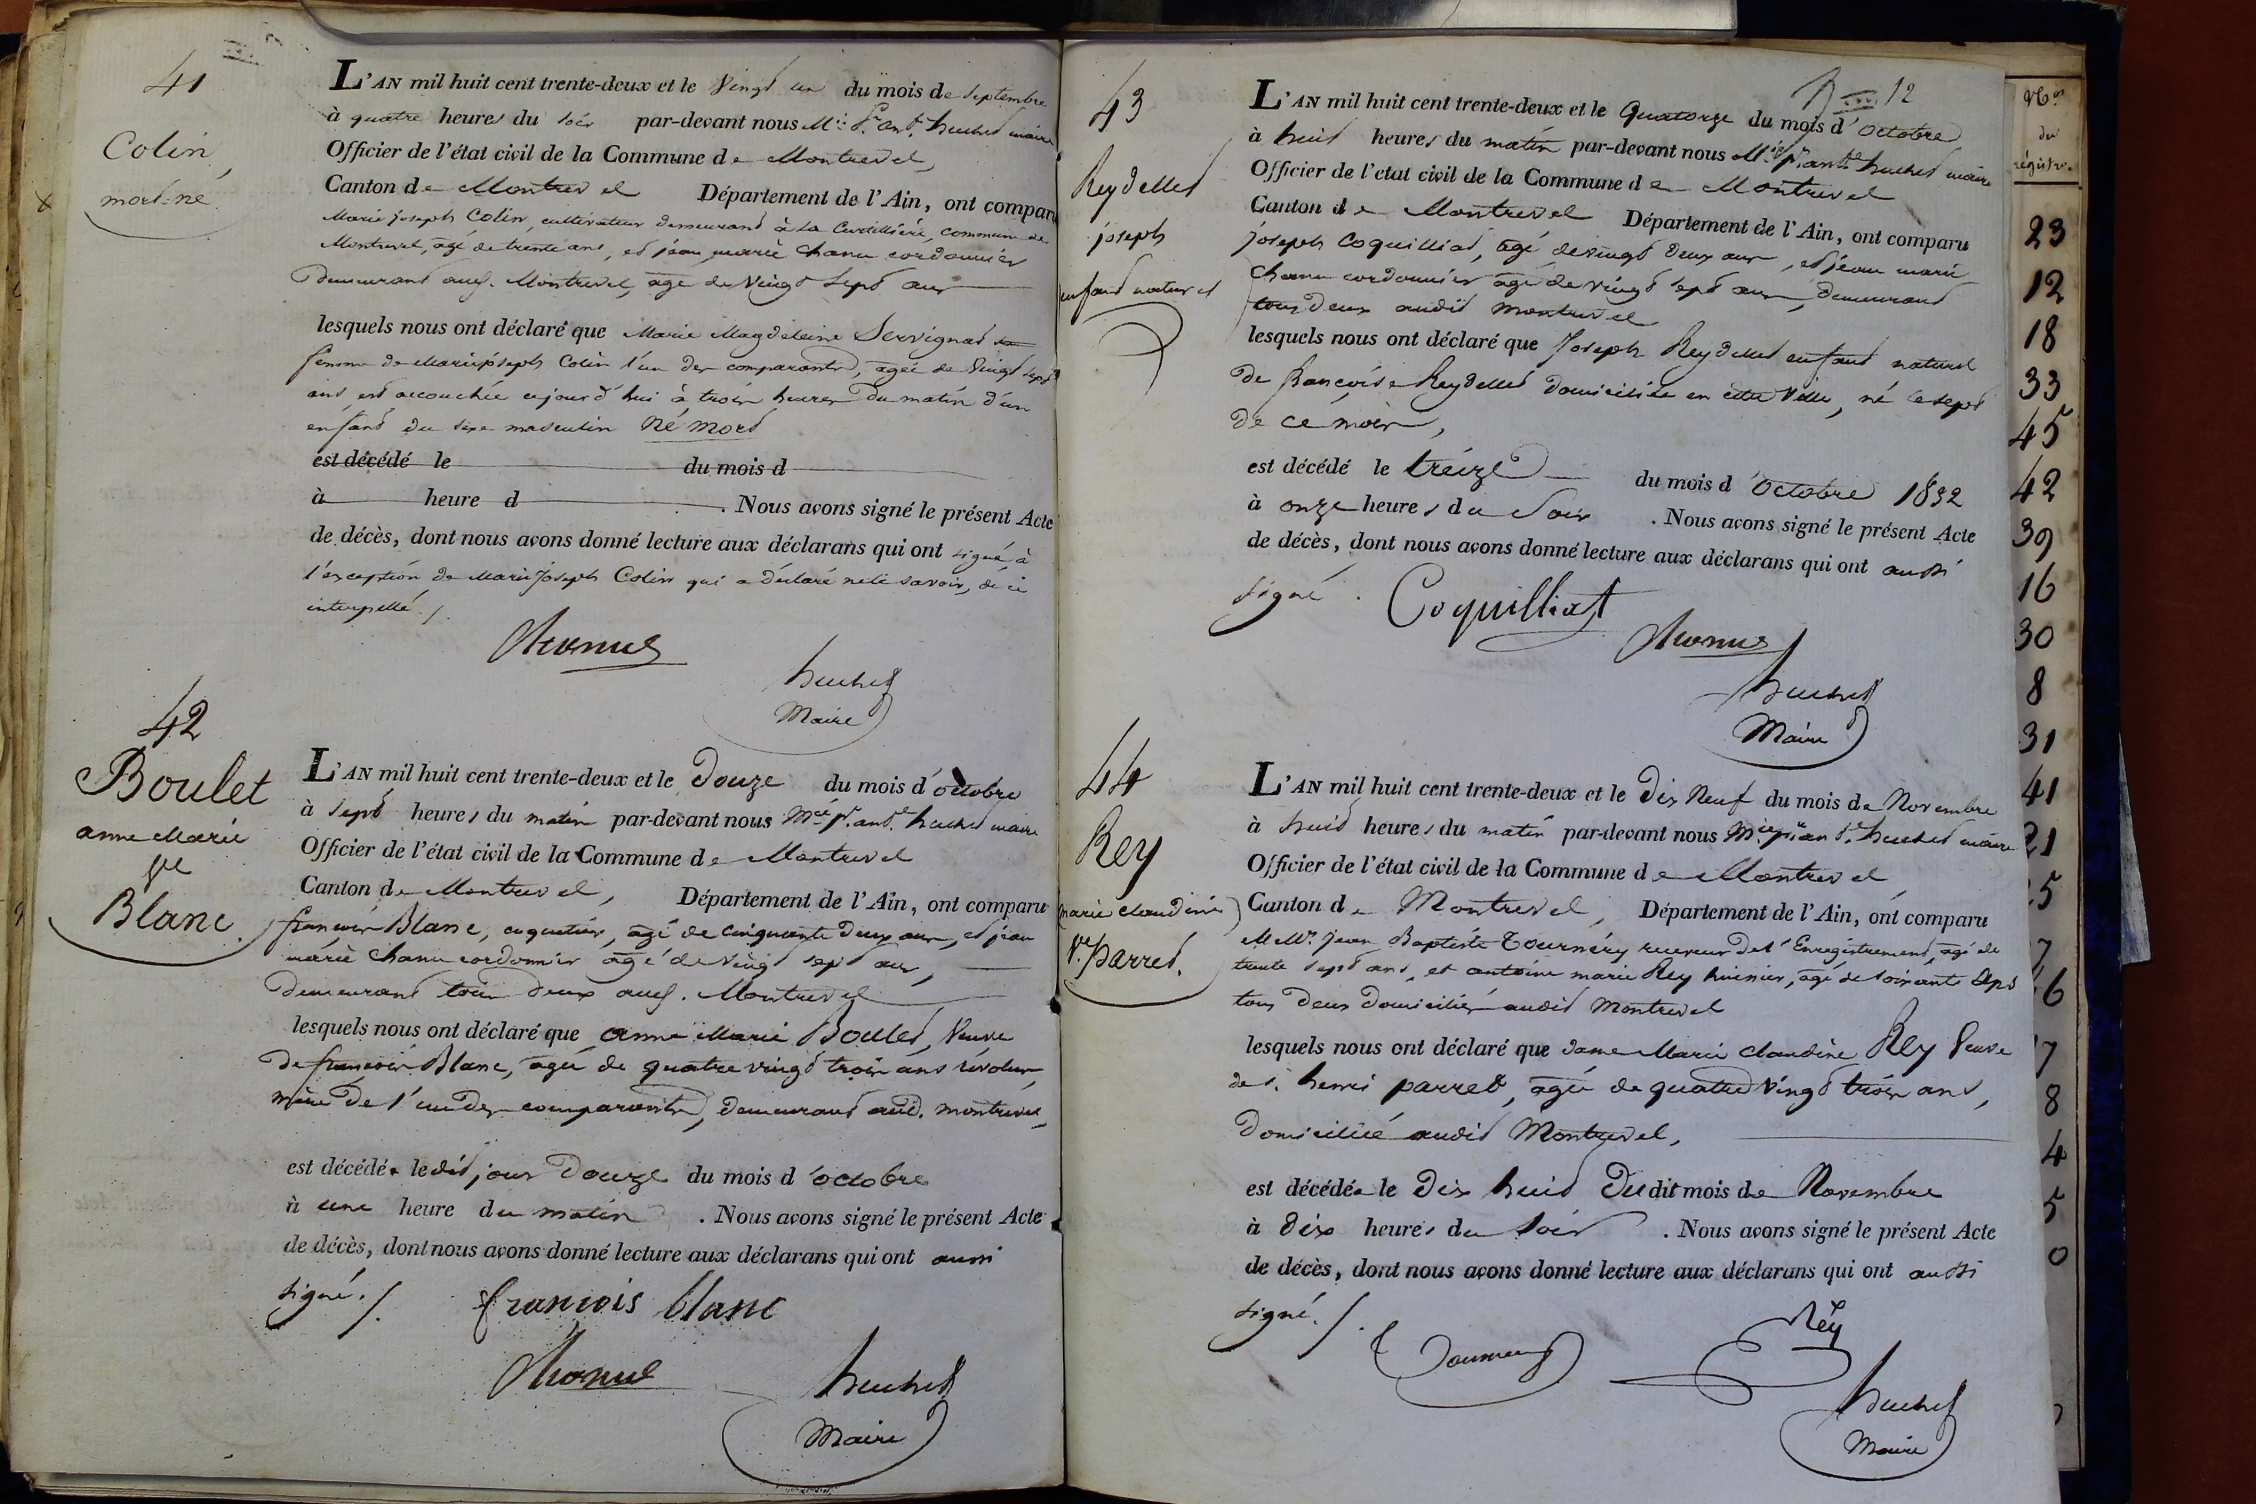 41
Colin
mort-né
L'AN mil huit cent trente-deux et le vingt un du mois de septembre
à quatre heures du soir par-devant nous M.ie f.s ant.e huchet maire
Officier de l'état civil de la Commune de Montrevel,
Canton de Montrevel Département de l'Ain, ont comparu
Marie joseph Colin, cultivateur demeurant à la Curtillière, commune de
Montrevel, âgé de trente ans, et jean marie Chanu cordonnier
demeurant aud. Montrevel, âgé de vingt sept ans
lesquels nous ont déclaré que Marie Magdeleine Servignat
femme de Marie joseph Colin l'un des comparants, agée de vingt sept
ans est accouchée cejourd'hui à trois heures du matin d'un
enfant du sexe masculin né mort
est décédé le du mois d
à heure d . Nous avons signé le présent Acte
de décès, dont nous avons donné lecture aux déclarans qui ont signé à
l'exception de Marie Joseph Colin qui a déclaré ne le savoir, de ce
interpellé ./.
Chanus
huchet
Maire
42
Boulet
anne Marie
v.ve
Blanc.
L'AN mil huit cent trente-deux et le Douze du mois d'octobre
à sept heures du matin par-devant nous M.ie f.s ant.e huchet maire
Officier de l'état civil de la Commune de Montrevel
Canton de Montrevel, Département de l'Ain, ont comparu
françois Blanc, coquetier, agé de cinquante deux ans, et jean
marie Chanu cordonnier agé de vingt sept ans,
Demeurant tous deux aud. Montrevel
lesquels nous ont déclaré que anne Marie Boulet, Veuve
de françois Blanc, agée de quatre vingt trois ans révolus
mère de l'un des comparants, demeurant aud. montrevel,
est décédée ledit jour Douze du mois d'octobre
à une heure du matin . Nous avons signé le présent Acte
de décès, dont nous avons donné lecture aux déclarans qui ont aussi
signé ./.
francois blanc
Chanus
huchet
Maire
12
43
Reydellet
joseph
enfant naturel
L'AN mil huit cent trente-deux et le Quatorze du mois d'octobre
à huit heures du matin par-devant nous M.ie f.s ant.e huchet maire
Officier de l'etat civil de la Commune de Montrevel
Canton de Montrevel Département de l'Ain, ont comparu
joseph Coquilliat, agé de vingt deux ans, et jean marie
Chanu cordonnier agé de vingt sept ans, demeurant
tous deux audit Montrevel
lesquels nous ont déclaré que Joseph Reydellet enfant naturel
de françoise Reydellet domiciliée en cette Ville, né le sept
de ce mois,
est décédé le treize du mois d'octobre 1832
à onze heures du Soir . Nous avons signé le présent Acte
de décès, dont nous avons donné lecture aux déclarans qui ont aussi
signé .
Coquilliat
Chanus
huchet
Maire
44
Rey
marie claudine
V.e Parret.
L'AN mil huit cent trente-deux et le Dix Neuf du mois de Novembre
à huit heures du matin par-devant nous M.ie f.s ant.e huchet maire
Officier de l'état civil de la Commune de Montrevel
Canton de Montrevel, Département de l'Ain, ont comparu
M.M.rs Jean Baptiste Tournéry receveur de l'Enregistrement, agé de
trente sept ans, et antoine marie Rey huissier, agé de soixante sept
tous deux domiciliés audit Montrevel
lesquels nous ont déclaré que dame Marie claudine Rey Veuve
de s. henri parret, agée de quatre vingt trois ans,
domiciliée audit Montrevel,
est décédée le dix huit dudit mois de Novembre
à dix heures du soir . Nous avons signé le présent Acte
de décès, dont nous avons donné lecture aux déclarans qui ont aussi
signé ./.
Rey
huchet
Maire
N.os
du
régistre.
23
12
18
33
45
42
39
16
30
8
31
41
21
5
7
6
7
8
4
5
0